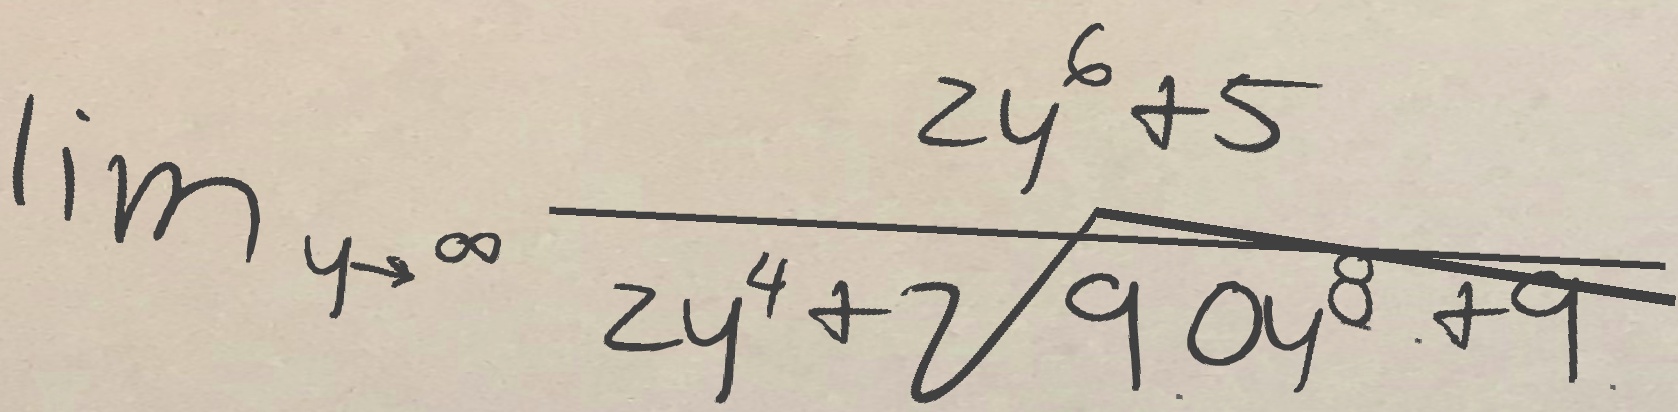 \lim_{y \to \infty} \frac{2y^6+5}{2y^4+\sqrt{90y^8+9}}